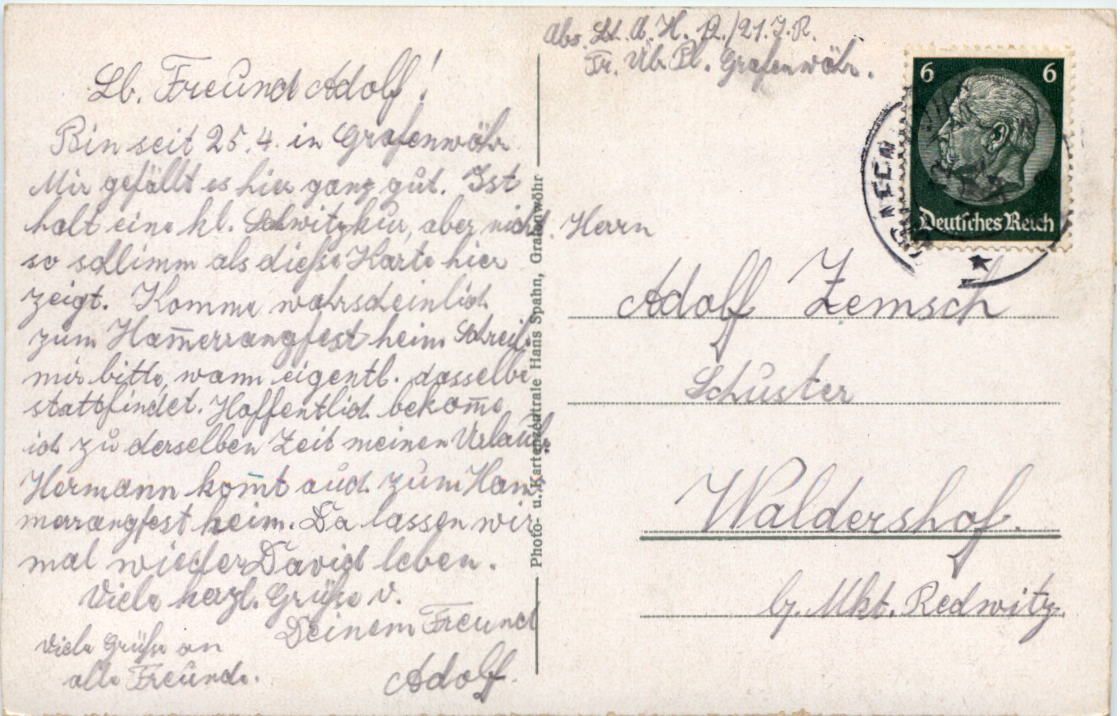 Lb. Freund Adolf!
Bin seit 25.4. in Grafenwöhr
Mir gefällt es hier ganz gut. Ist
halt eine kl. Schwitzkur, aber nicht
so schlimm als dieße Karte hier
zeigt. Komme wahrscheinlich
zum Ham̅errangfest heim Schreib
mir bitte, wann eigentl. dasselbe
stattfindet. Hoffentlich bekom̅e
ich zu derselben Zeit meinen Urlaub.
Hermann kom̅t auch zum Ham-
merrangfest heim. Da lassen wir
mal wieder David leben.
Viele herzl. Grüße v.
Deinem Freund
Adolf.
Viele Grüße an
alle Freunde.
Photo- u. Kartenzentrale Hans Spahn, Grafenwöhr
Abs. A. H. 12./21. J.R.
Tr. Üb. Pl. Grafenwöhr.
6 6
Deutsches Reich
Herrn
Adolf Zemsch
Schuster
Waldershof.
b. Mkt. Redwitz.